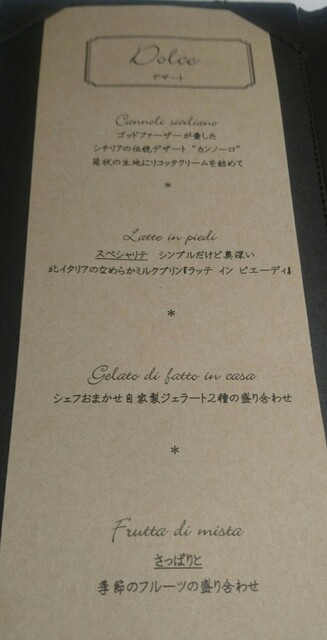 Dolce
デザート
Cannoli siciliano
ゴッドファーザーが愛した
シチリアの伝統デザート “カンノーロ”
筒状の生地にリコッタクリームを詰めて
*
Latte in piedi
スペシャリテ シンプルだけど奥深い
北イタリアのなめらかミルクプリン『ラッテ イン ピエーディ』
*
Gelato di fatto in casa
シェフおまかせ自家製ジェラート2種の盛り合わせ
*
Frutta di mista
さっぱりと
季節のフルーツの盛り合わせ